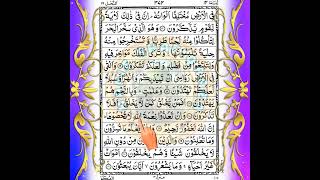 فِي الْأَرْضِ مُخْتَلِفًا أَلْوَانُهُ إِنَّ فِي ذَٰلِكَ لَآيَةً
لِّقَوْمٍ يَذَّكَّرُونَ وَهُوَ الَّذِي سَخَّرَ الْبَحْرَ
لِتَأْكُلُوا مِنْهُ لَحْمًا طَرِيًّا وَتَسْتَخْرِجُوا مِنْهُ
حِلْيَةً تَلْبَسُونَهَا وَتَرَى الْفُلْكَ
وَلِتَبْتَغُوا مِن فَضْلِهِ وَلَعَلَّكُمْ تَشْكُرُونَ
فِي الْأَرْضِ رَوَاسِيَ أَن تَمِيدَ بِكُمْ
تَهْتَدُونَ وَعَلَامَاتٍ
يَهْتَدُونَ أَفَمَن يَخْلُقُ كَمَن لَّا يَخْلُقُ
تَذَكَّرُونَ وَإِن تَعُدُّوا نِعْمَةَ اللَّهِ لَا تُحْصُوهَا
إِنَّ اللَّهَ لَغَفُورٌ رَّحِيمٌ وَاللَّهُ يَعْلَمُ مَا تُسِرُّونَ
وَمَا تُعْلِنُونَ وَالَّذِينَ يَدْعُونَ مِن دُونِ اللَّهِ
لَا يَخْلُقُونَ شَيْئًا وَهُمْ يُخْلَقُونَ أَمْوَاتٌ
غَيْرُ أَحْيَاءٍ وَمَا يَشْعُرُونَ أَيَّانَ يُبْعَثُونَ